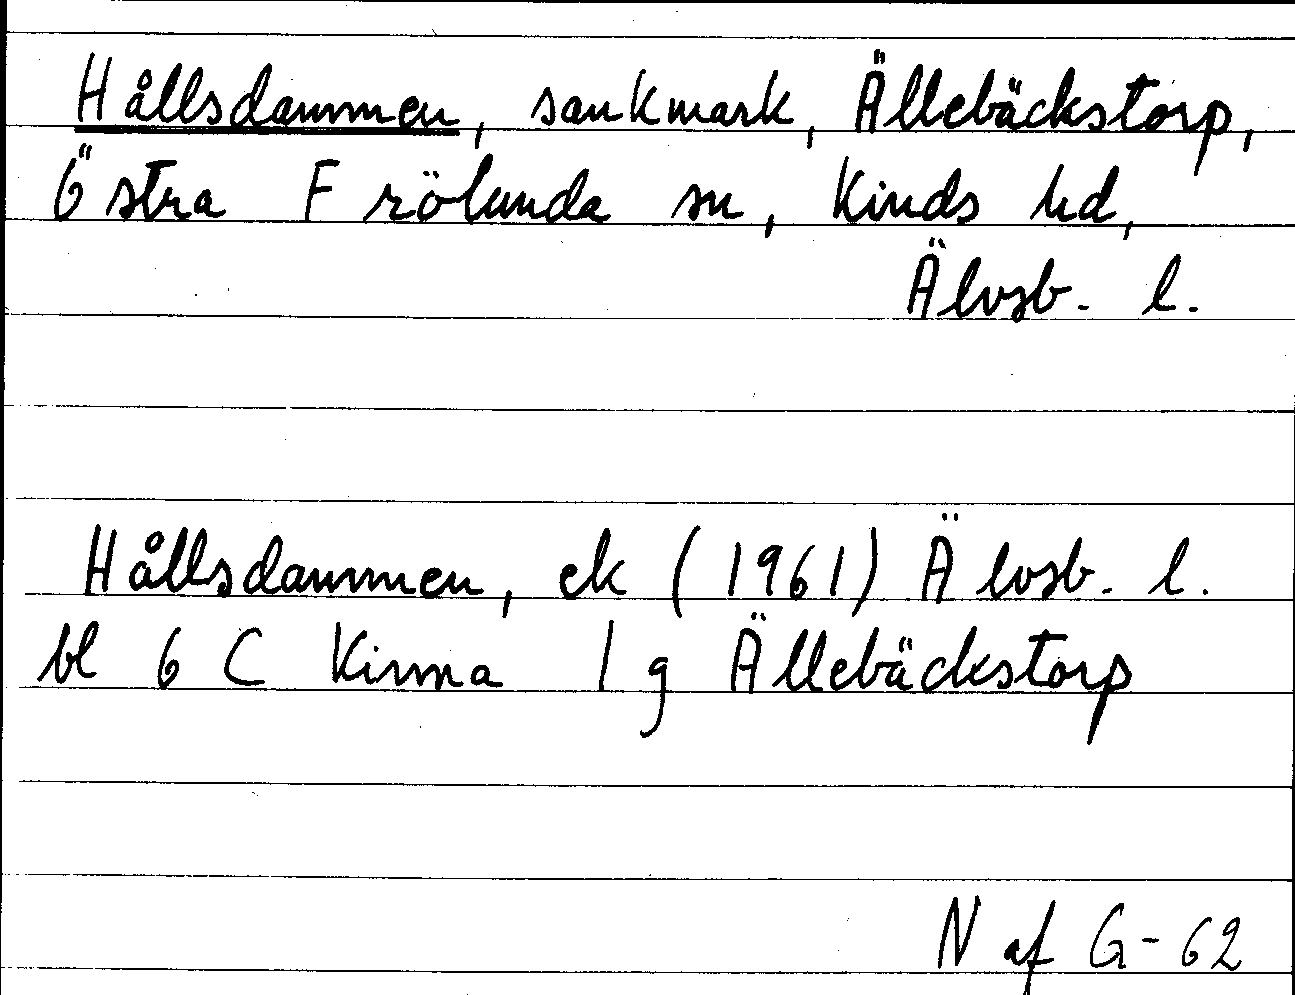 Hållsdammen, sankmark, Ällebäckstorp,
Östra Frölunda sn, Kinds hd,
Älvsb. l.
Hållsdammen, ek (1961) Älvsb. l.
bl 6 C Kinna 1 g Ällebäckstorp
N af G-62